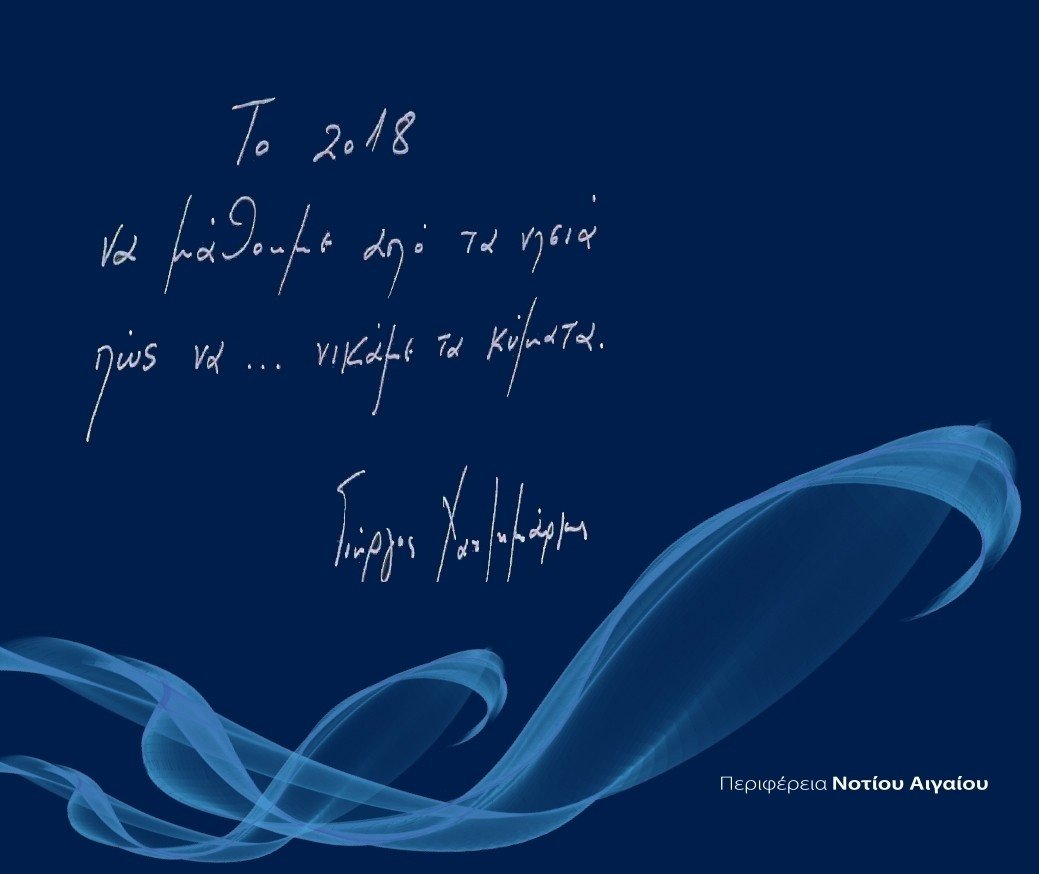 Το 2018
να μάθουμε από τα νησιά
πώς να ... νικάμε τα κύματα.
Γιώργος Χατζημάρκος
Περιφέρεια Νοτίου Αιγαίου